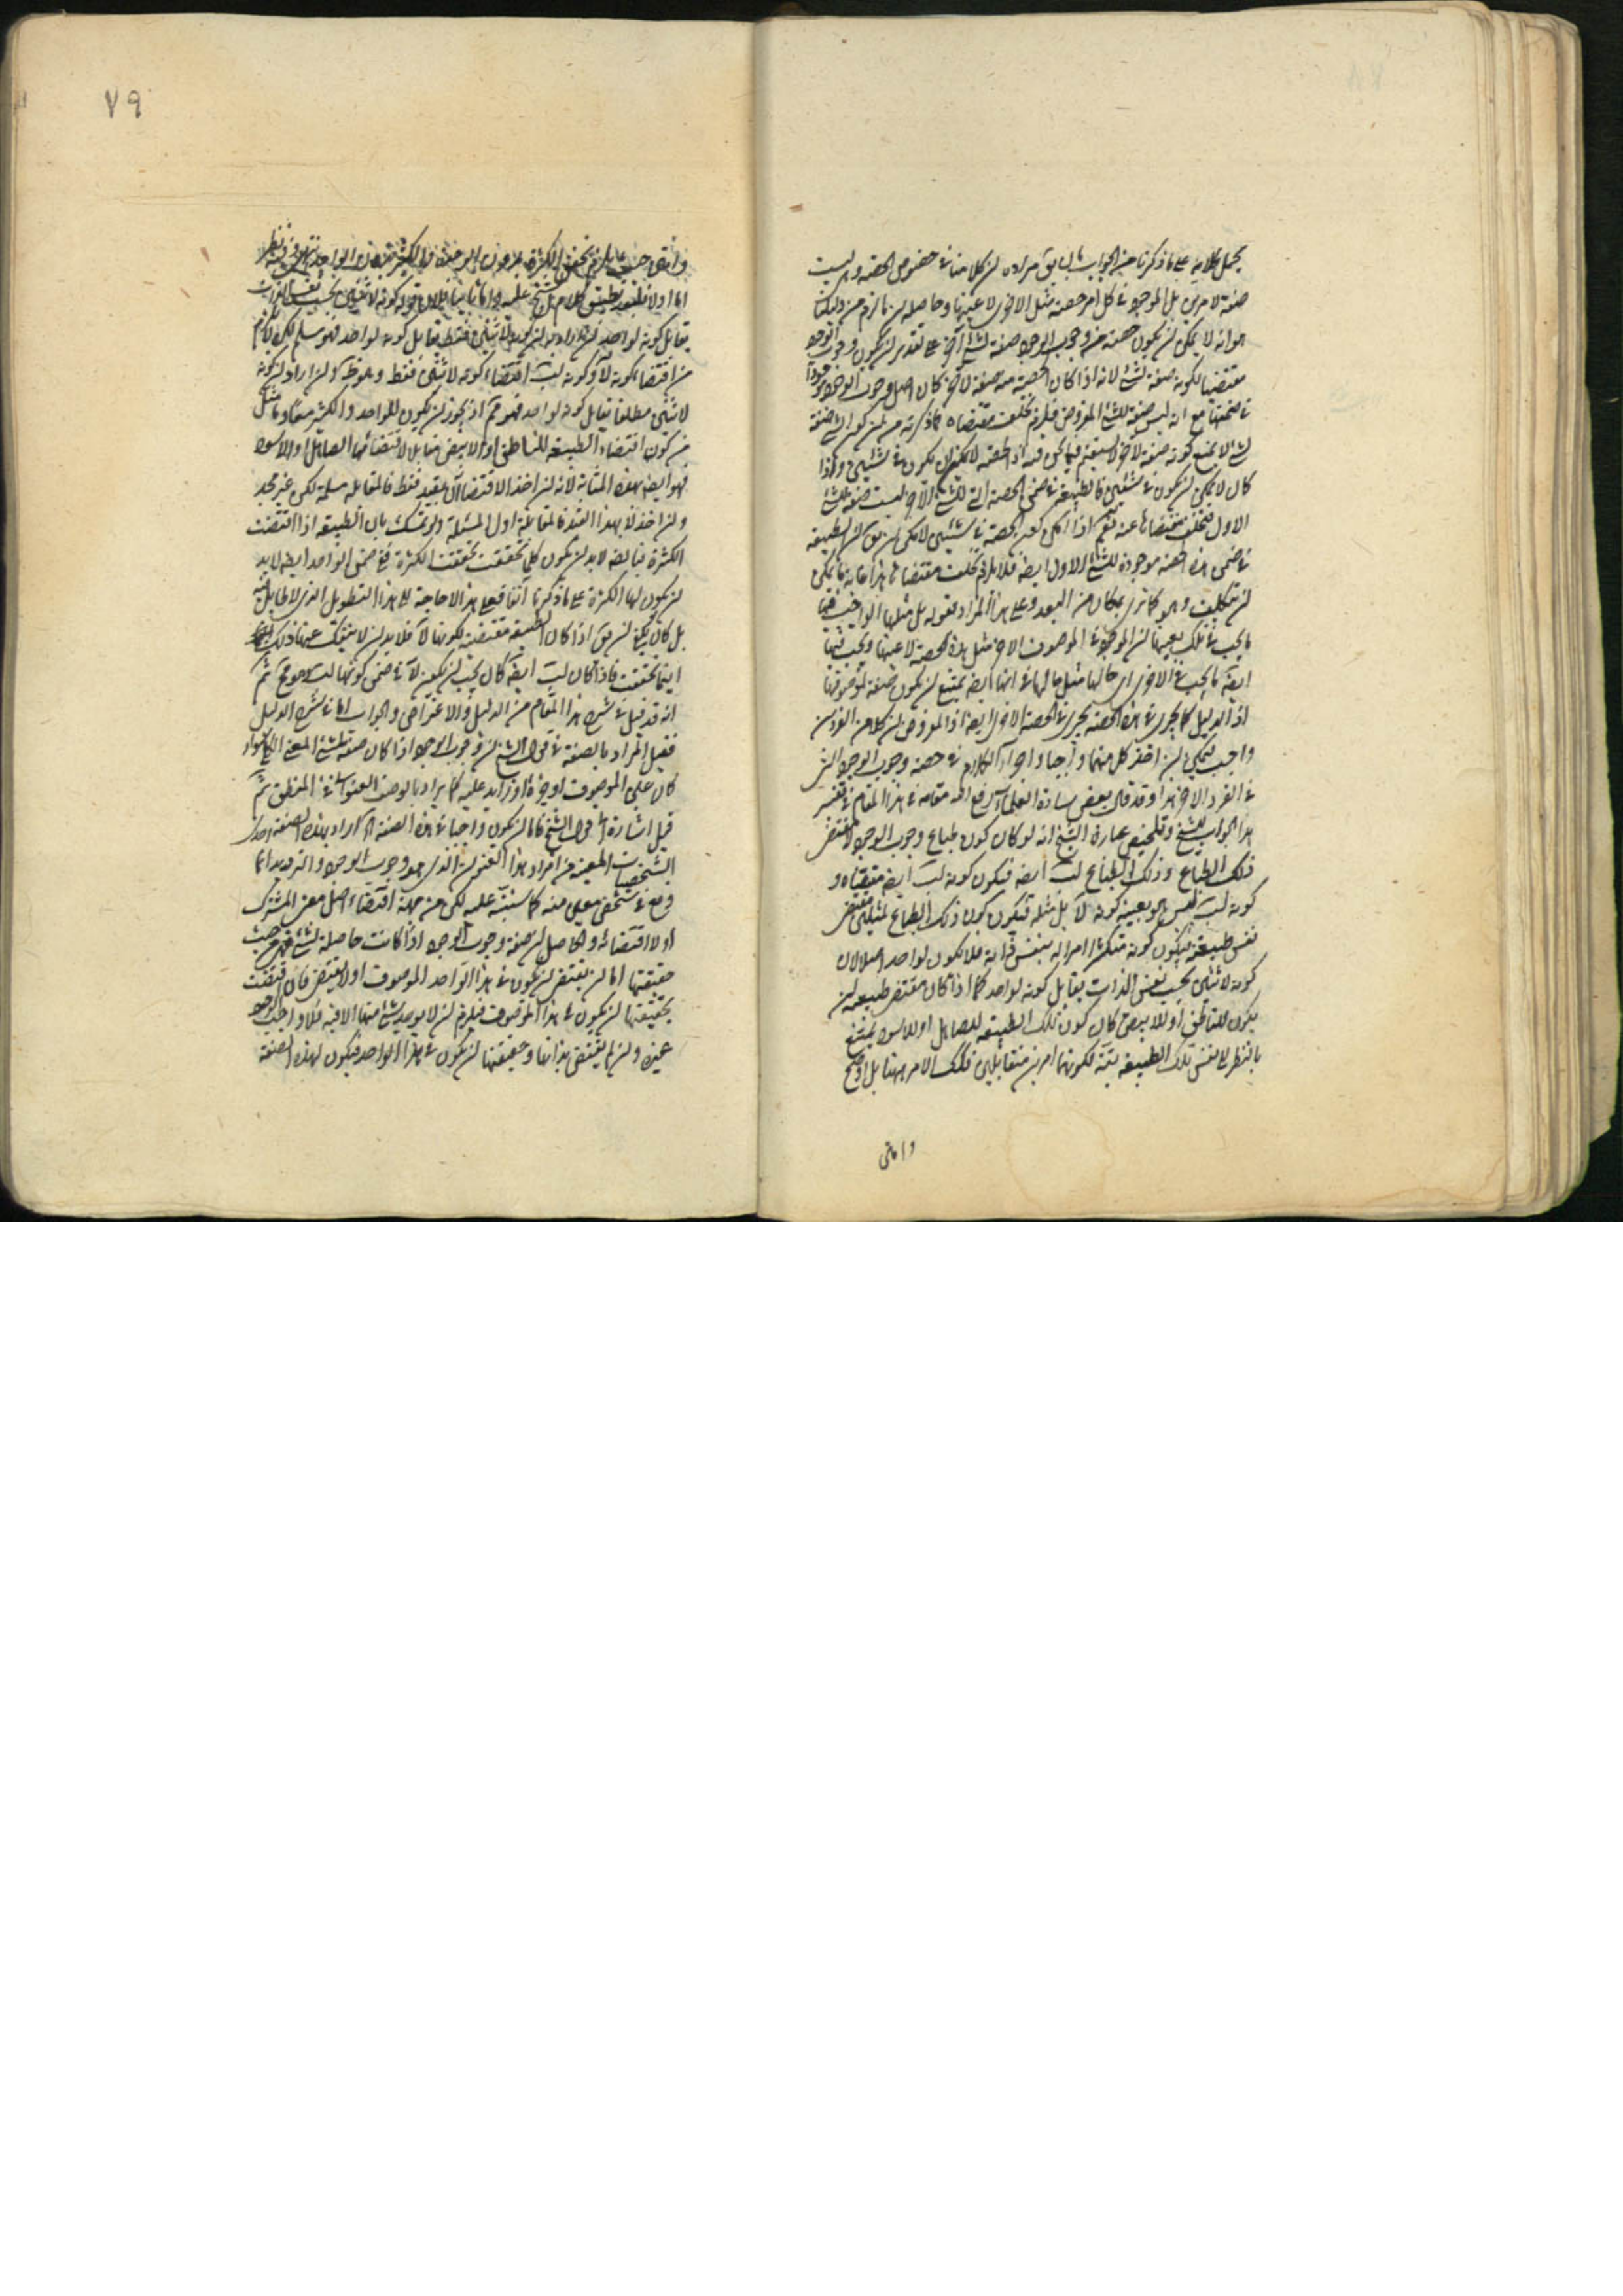 يحمل كلامه على ما ذكرنا من الجواب السابق مراده ان كلامنا في خصوص الحصة وهي ليست
صفة لامرين بل الموجود في كل امر حصة مثل الاخرى لا عينها وحاصله ان ما لزم من دليلنا
هو انه لا يمكن ان يكون حصة من وجوب الوجود صفة لشئ آخر على تقدير ان يكون وجوب الوجود
مقتضيا لكونه صفة لشئ لانه اذا كان الحصة منه صفة لآخر كان اصل وجوب الوجود موجودا
في ضمنها مع انه ليس صفة للشئ المفروض فيلزم تخلف مقتضاه
لشئ لا يمنع كونه صفة لآخر
كان لا يمكن ان يكون في شيئين فالطبيعة في ضمن الحصة التي للشئ الآخر ليست صفة للشئ
الاول فتخلف مقتضاها عنه نعم اذا امكن كون الحصة في شيئين لامكن ان يق ان الطبيعة
في ضمن هذه الحصة موجودة للشئ الاول ايضا فلا يلزم تخلف مقتضاها هذا غاية ما يمكن
ان يتكلف وهو كما ترى بمكان من البعد وعلى هذا المراد بقوله بل مثلها الواجب فيها
ما يجب في تلك بعينها ان الموجود في الموصوف الاخر مثل هذه الحصة لا عينها ويجب فيها
ايضا ما يجب في الاخرى اى حالها مثل حالها في انها ايضا يمتنع ان يكون صفة لموصوفها
اذ الدليل كما يجرى في هذه الحصة يجرى في الحصة الاخرى ايضا اذ المفروض ان كلا من الفردين
واجب فيمكن ان اخذ كل منهما واجبا واجراء الكلام في حصة وجوب الوجود التي
في الفرد الاخر هذا وقد قال بعض سادة العلماء رفع الله مقامه في هذا المقام في تفسير
هذا الجواب للشيخ وتلخيص عبارة الشيخ انه لو كان كون طباع وجوب الوجود لآ مقتضى
ذلك الطباع وذلك الطباع لب ايضا فيكون كونه لب ايضا مقتضاه و
كونه لب ليس هو بعينه كونه لآ بل مثله فيكون كون ذلك الطباع لمثلين مقتضى
نفس طبيعته فيكون كونه متكثرا امرا له بنفس ذاته فلا يكون لواحد اصلا لان
كونه لاثنين بحسب نفس الذات يقابل كونه لواحد كما اذا كان مقتضى طبيعة ان
يكون للناطق او للابيض كان كون تلك الطبيعة للصاهل او للاسود يمتنع
بالنظر الى نفس تلك الطبيعة بتة لكونهما امرين متقابلين فكك الامر هيهنا بل اوضح
واوثق
٧٩
اما اولا فلبعد تطبيق كلام الشيخ عليه واما ثانيا فلان قوله كونه لاثنين بحسب نفس الذات
يقابل كونه لواحد ان اراد به ان كونه لاثنين فقط يقابل كونه لواحد فهو مسلم لكن لا يلزم
من اقتضاء كونه لآ وكونه لب اقتضاء كونه لاثنين فقط وهو ظ وان اراد ان كونه
لاثنين مطلقا يقابل كونه لواحد فهو مم اذ يجوز ان يكون للواحد والكثير معا وما مثل
من كون اقتضاء الطبيعة للناطق او الابيض مقابلا لاقتضائها الصاهل او الاسود
فهو ايضا بهذه المثابة لانه ان اخذ الاقتضاآن بقيد فقط فالمقابلة مسلمة لكن غير مجد
وان اخذ لا بهذا القيد فالمقابلة اول المسئلة ولو تمسك بان الطبيعة اذا اقتضت
الكثرة فبالضرورة لا بد ان يكون كلما تحققت تحققت الكثرة ففى ضمن الواحد ايضا لا بد
ان يكون لها الكثرة على ما ذكرنا آنفا فعلى هذا لا حاجة الى هذا التطويل الذى لا طائل تحته
بل كان يكفى ان يق اذا كان الطبيعة مقتضية لكونها لآ فلا بد ان لا ينفك عنها ذلك
اينما تحققت فاذا كان لب ايضا كان يجب ان يكون لآ في ضمن كونها لب وهو مح ثم
انه قد قيل في شرح هذا المقام من الدليل والاعتراض والجواب اما في شرح الدليل
فقيل المراد بالصفة في قول الشيخ ان وجوب الوجود اذا كان صفة لشئ المعنى الكلى سواء
كان عين الموصوف او جزءه او زايدا عليه كما يراد بالوصف العنوانى في المنطق ثم
قيل اشارة الى قول الشيخ فاما ان يكون واجبا في هذه الصفة اه اراد بهذه الصفة احد
الشخصيات المعينة من افراد هذا العنوان الذى هو وجوب الوجود والترديد انما
وقع في شخص معين منه كما سننبه عليه لكن من جهة اقتضاء اصل معنى المشترك
او لا اقتضائه والحاصل ان صفة وجوب الوجود اذا كانت حاصلة لشئ فهى من حيث
حقيقتها اما ان يقتضى ان يكون في هذا الواحد الموصوف او لا يقتضى فان اقتضت
بحقيقتها ان يكون في هذا الموصوف فيلزم ان لا يوجد شئ منها الا فيه فلا واجب الوجود
غيره وان لم يقتض بذاتها وحقيقتها ان يكون في هذا الواحد فيكون لهذه الصفة